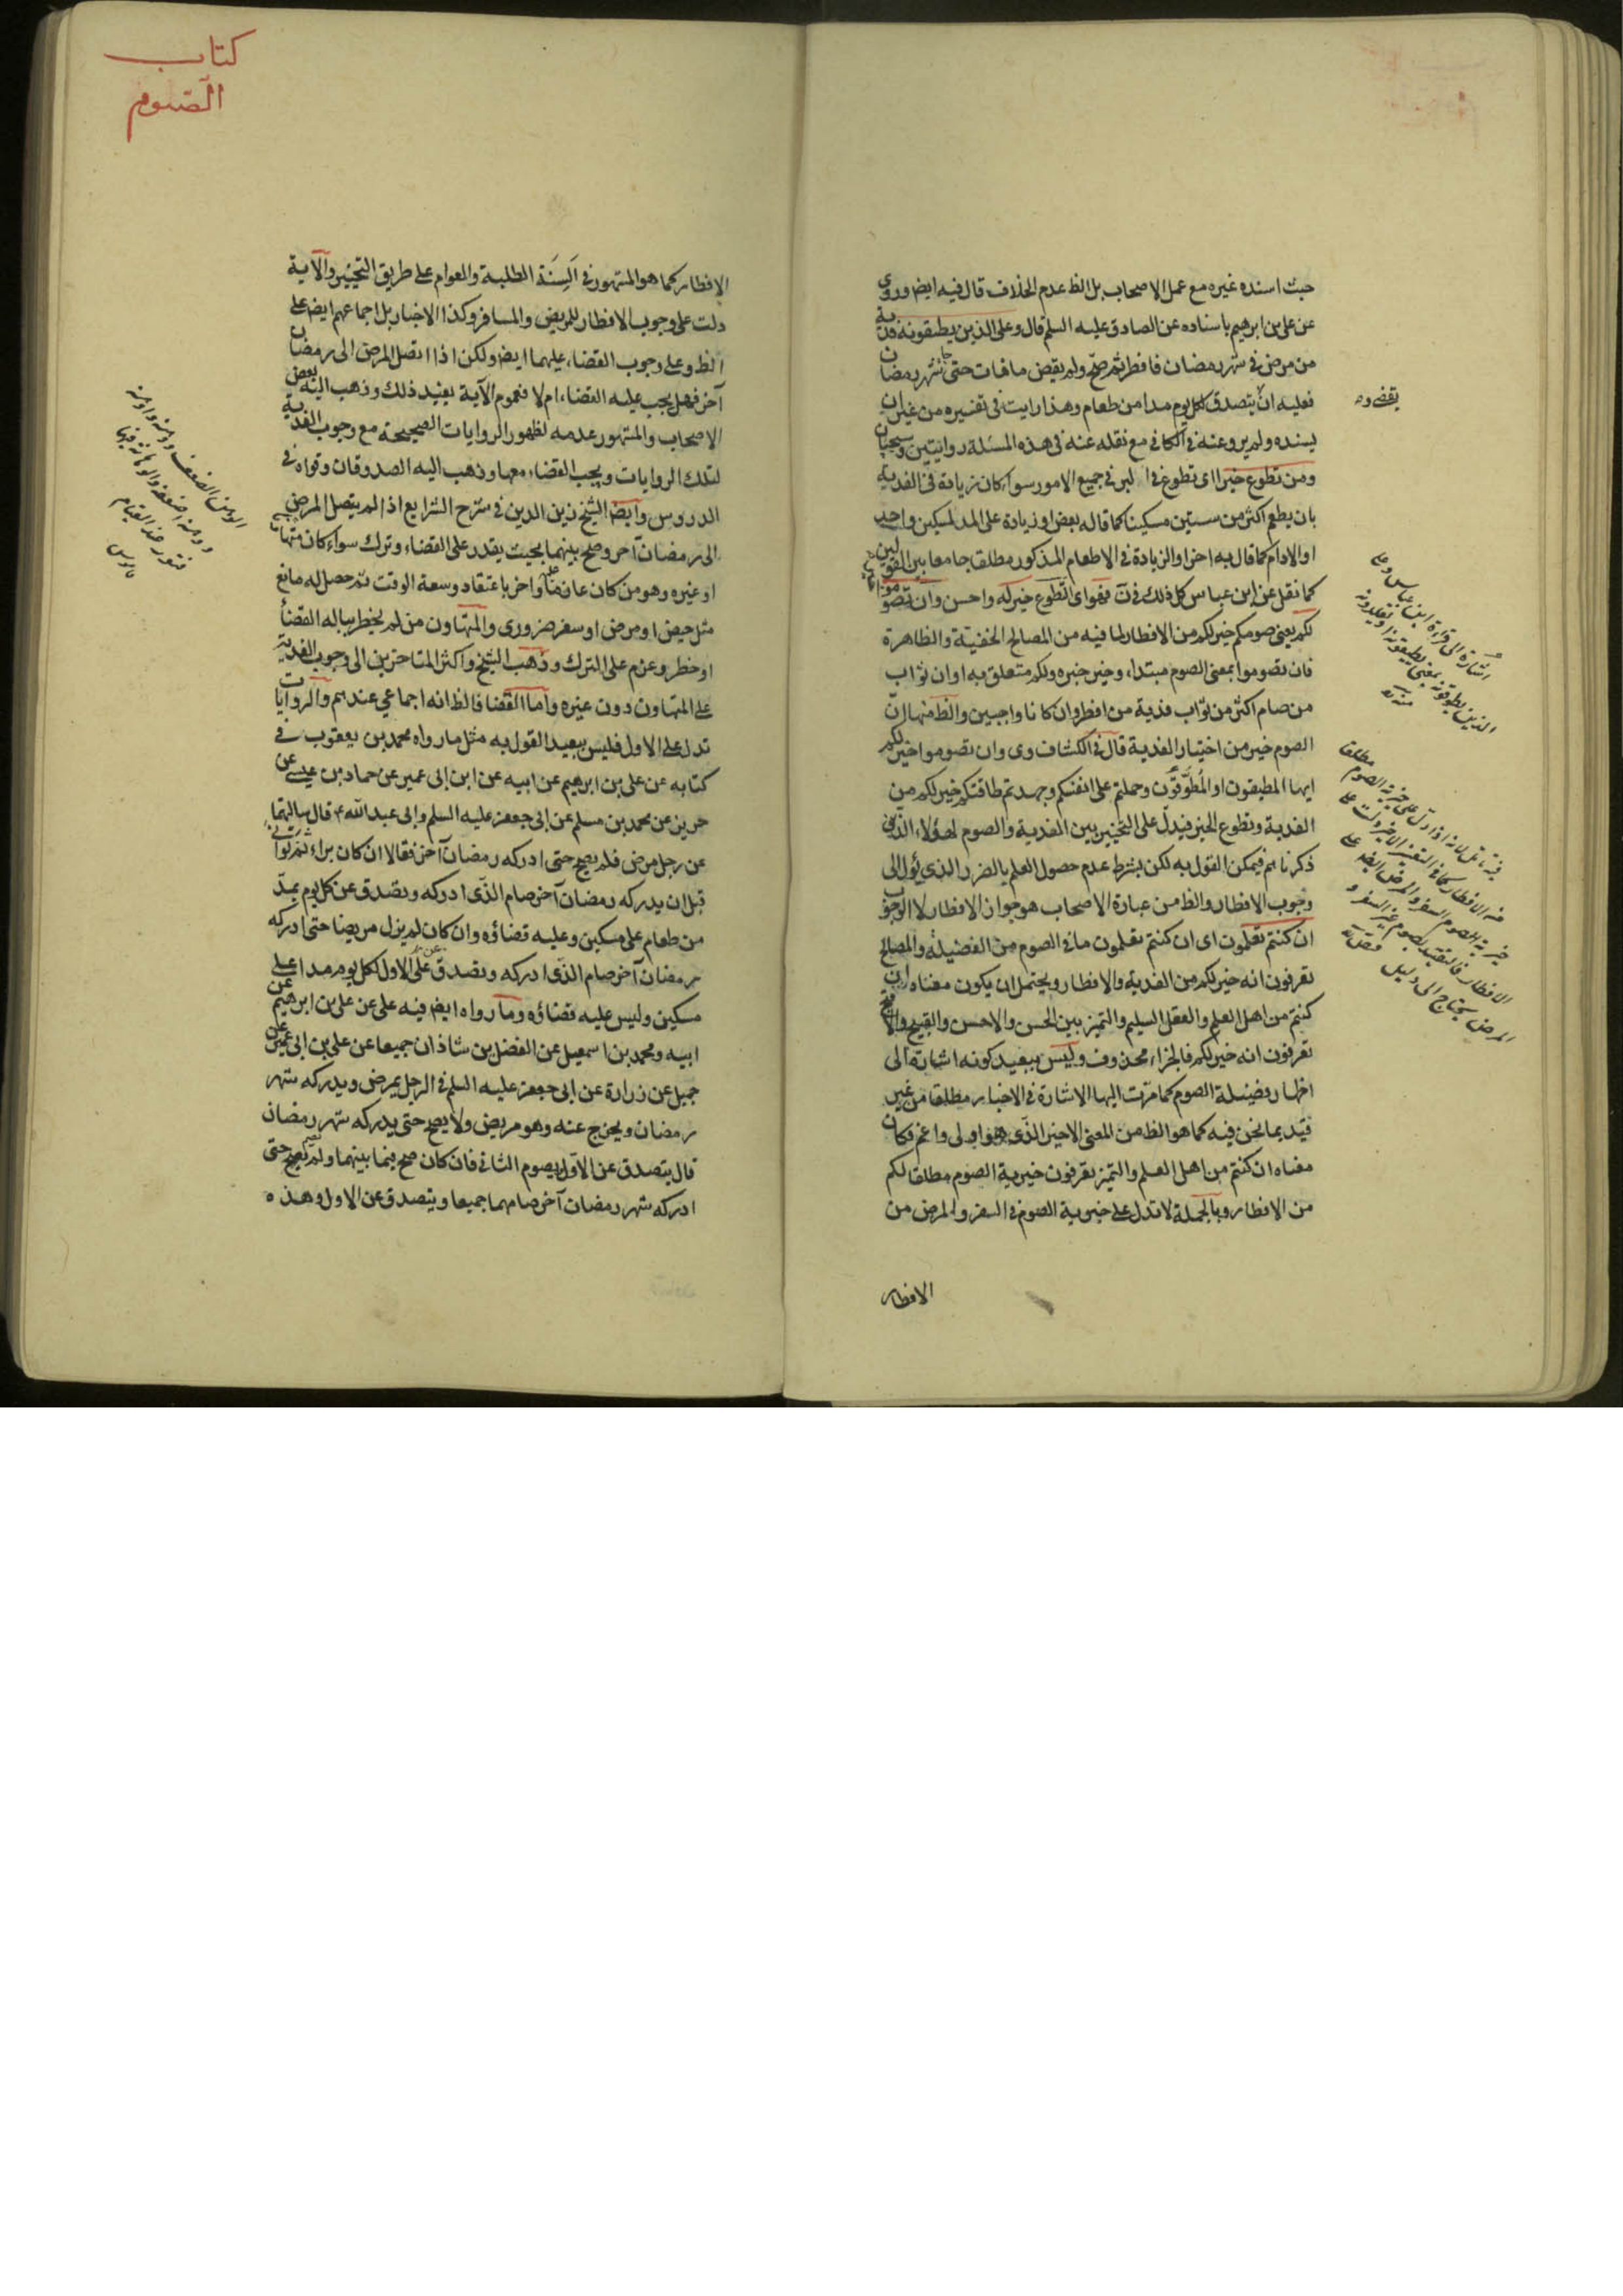 حيث اسنده غيره مع عمل الاصحاب بل الظ عدم الخلاف قال فيه ايض وروى
عن على بن ابرهيم باسناده عن الصادق عليه السلم قال وعلى الذين يطيقونه فدية
من مرض فى شهر رمضان فافطر ثم صح ولم يقض ما فات حتى جاء شهر رمضان
فعليه ان يتصدق لكل يوم مدا من طعام وهذا رايت فى تفسيره من غير ان
يسنده ولم يروعنه فى الكافى مع نقله عنه فى هذه المسئلة روايتين وسيجيئان
ومن تطوع خيرا اى تطوع فى البر فى جميع الامور سواء كان زيادة فى الفدية
بان يطعم اكثر من ستين مسكينا كما قاله بعض او زيادة على المد لمسكين واحد
او الادام كما قال به اخر او الزيادة فى الاطعام المذكور مطلقا جامعا بين القولين
كما نقل عن ابن عباس كل ذلك فى ن فهو اى التطوع خير له واحسن وان تصوموا
لكم يعنى صومكم خير لكم من الافطار لما فيه من المصالح الخفية والظاهرة
فان تصوموا بمعنى الصوم مبتداء وخير خبره ولكم متعلق به او ان ثواب
من صام اكثر من ثواب فدية من افطر وان كانا واجبين والظ منها ان
الصوم خير من اختيار الفدية قال فى الكشاف وى وان تصوموا خير لكم
ايها المطيقون او المُطَوَّقون وحملتم على انفسكم وجهدتم طاقتكم خير لكم من
الفدية وتطوع الخير فيدل على التخيير بين الفدية والصوم لهؤلاء الذين
ذكرناهم فيمكن القول به لكن بشرط عدم حصول العلم بالضرر الذى يؤل الى
وجوب الافطار والظ من عبارة الاصحاب هو جواز الافطار لا الوجوب
ان كنتم تعلمون اى ان كنتم تعلمون ما فى الصوم من الفضيلة والمصالح
تعرفون انه خير لكم من الفدية والافطار ويحتمل ان يكون معناه ان
كنتم من اهل العلم والعقل السليم والتميز بين الحسن والاحسن والقبيح والاقبح
تعرفون انه خير لكم فالجزاء محذوف وليس ببعيد كونه اشارة الى
اظهار فضيلة الصوم كما مرت اليها الاشارة فى الاخبار مطلقا من غير
قيد بما نحن فيه كما هو الظ من المعنى الاخير الذى هو اولى واعم فكان
معناه ان كنتم من اهل العلم والتميز تعرفون خيرية الصوم مطلقا لكم
من الافطار وبالجملة لا تدل على خيرية الصوم فى السفر والمرض من
الافطار
يقضى وه
اشارة الى قراءة ابن عباس وعلى
الذين يطوقونه بمعنى يطيقونه او يقلدونه
منه ره
خيرية الصوم مطلقا
الافطار فالتقييد بصوم غير السفر و
المرض يحتاج الى دليل
كتاب
الصّوم
الافطار كما هو المشهور فى اَلسِنَة الطلبة والعوام على طريق التخيير والآية
دلت على وجوب الافطار للمريض والمسافر وكذا الاخبار بل اجماعهم ايض على
الظ وعلى وجوب القضاء عليهما ايض ولكن اذا اتصل المرض الى رمضان
آخر فهل يجب عليه القضاء ام لا فعموم الآية يفيد ذلك وذهب اليه بعض
الاصحاب والمشهور عدمه لظهور الروايات الصحيحة مع وجوب الفدية
لتلك الروايات ويجب القضاء معها وذهب اليه الصدوقان وقواه فى
الدروس وايضا الشيخ زين الدين فى شرح الشرايع اذا لم يتصل المرض
الى رمضان آخر وصح بينهما بحيث يقدر على القضاء وترك سواء كان متهاونا
او غيره وهو من كان عازما واخر باعتقاد وسعة الوقت ثم حصل له مانع
مثل حيض او مرض او سفر ضرورى والمتهاون من لم يخطر بباله القضاء
او خطر وعزم على الترك وذهب الشيخ واكثر المتاخرين الى وجوب الفدية
على المتهاون دون غيره واما القضا فالظ انه اجماعي عندهم والروايات
تدل على الاول فليس ببعيد القول به مثل ما رواه محمد بن يعقوب فى
كتابه عن على بن ابرهيم عن ابيه عن ابن ابى عمير عن حماد بن عيسى عن
حريز عن محمد بن مسلم عن ابى جعفر عليه السلم وابى عبد الله ع قال سالتهما
عن رجل مرض فلم يصح حتى ادركه رمضان آخر فقالا ان كان براء ثم توانى
قبل ان يدركه رمضان آخر صام الذى ادركه وتصدق عن كل يوم بمدّ
من طعام على مسكين وعليه قضاؤه وان كان لم يزل مريضا حتى ادركه
رمضان آخر صام الذى ادركه وتصدق عن الاول لكل يوم مدا على
مسكين وليس عليه قضاؤه وما رواه ايض فيه على عن على بن ابرهيم عن
ابيه ومحمد بن اسمعيل عن الفضل بن شاذان جميعا عن على بن ابى عمير عن
جميل عن زرارة عن ابى جعفر عليه السلم فى الرجل يمرض ويدركه شهر
رمضان ويخرج عنه وهو مريض ولا يصح حتى يدركه شهر رمضان
قال يتصدق عن الاول ويصوم الثانى فان كان صح فيما بينهما ولم يصم حتى
ادركه شهر رمضان آخر صامهما جميعا ويتصدق عن الاول وهذه